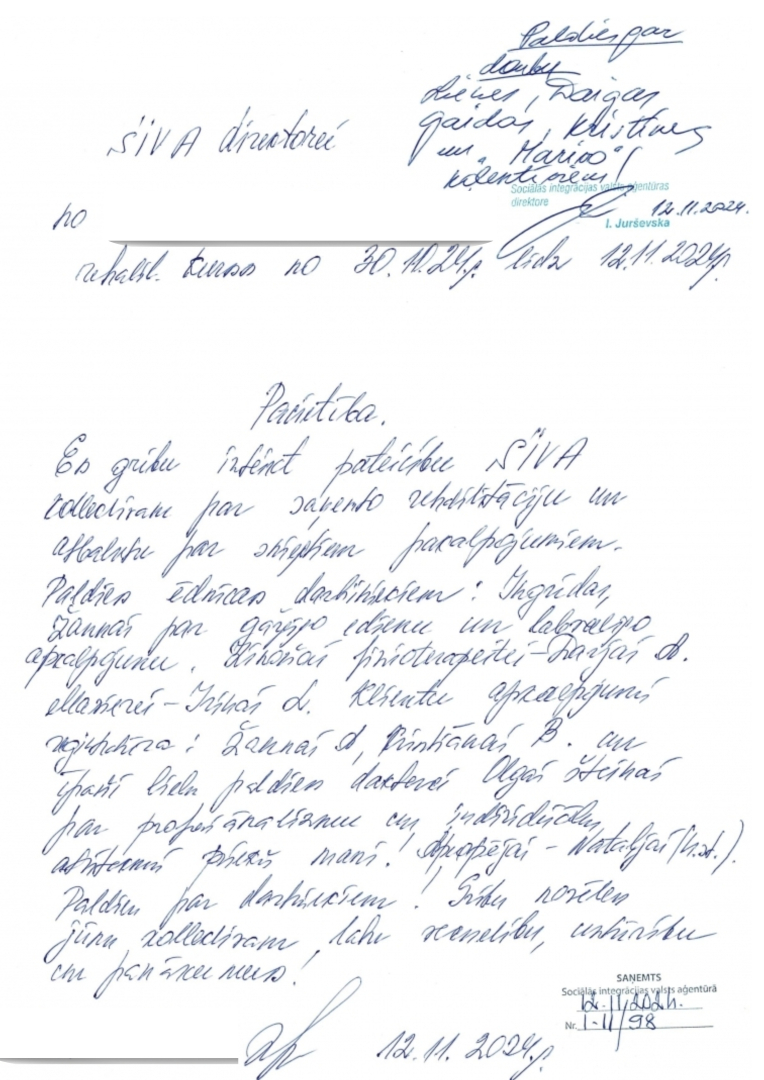 Paldies par
darbu
Lienes, Daigas
Gaidas, Kristīnes
un "Marico"
kolektīviem!
Sociālās integrācijas valsts aģentūras
direktore
12.11.2024.
I. Jurševska
SIVA direktorei
no
rehabil. kurss no 30.10.24.g. līdz 12.11.2024g.
Pacietība.
Es gribu izteikt pateicību SIVA
kollectivam par saņemto rehabilitāciju un
atbalstu par sniegtiem pakalpojumiem.
Paldies ēdnīcas darbiniekiem: Ingrīdas,
Žannai par garšīgo ēdienu un labvēlīgo
apkalpojumu. fizioterapeitei - Darjai A.
Masierei - Irinai L. Klientu apkalpojumi
reģistratora: Žannai A, Kristiānai B. un
īpaši lielu paldies dakterei Olgai
par profesionālismu un individuālu
attieksmi pret mani! Apkopējai - Natālijai (N.A.).
Paldies par darbiniekiem! Gribu novēlēt
jūsu kollectivam labu veselību, izturību
un panākumus!
12.11.2024.g.
SAŅEMTS
Sociālās integrācijas valsts aģentūrā
12.11.2024.
Nr. 1-11/98